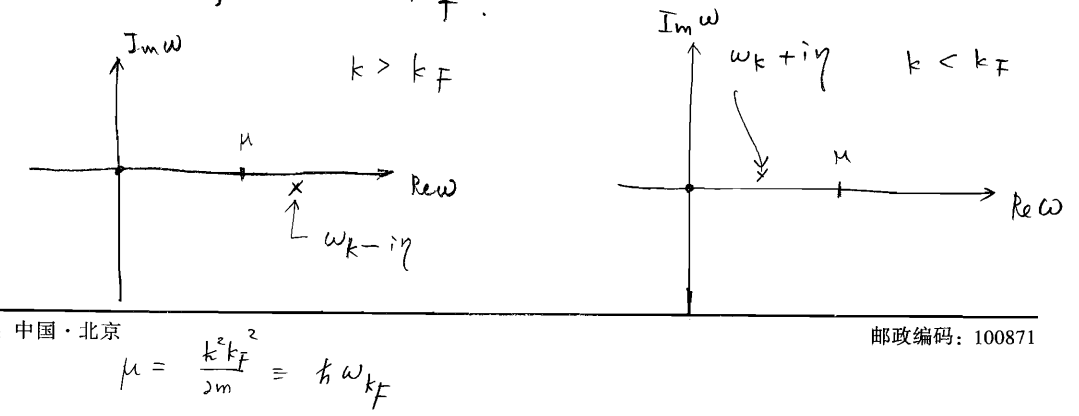 Im ω
k > k_F
μ
Re ω
ω_k − iη
Im ω
ω_k + iη
k < k_F
μ
Re ω
中国·北京
邮政编码：100871
μ = ħ²k_F²/2m ≡ ħω_{k_F}